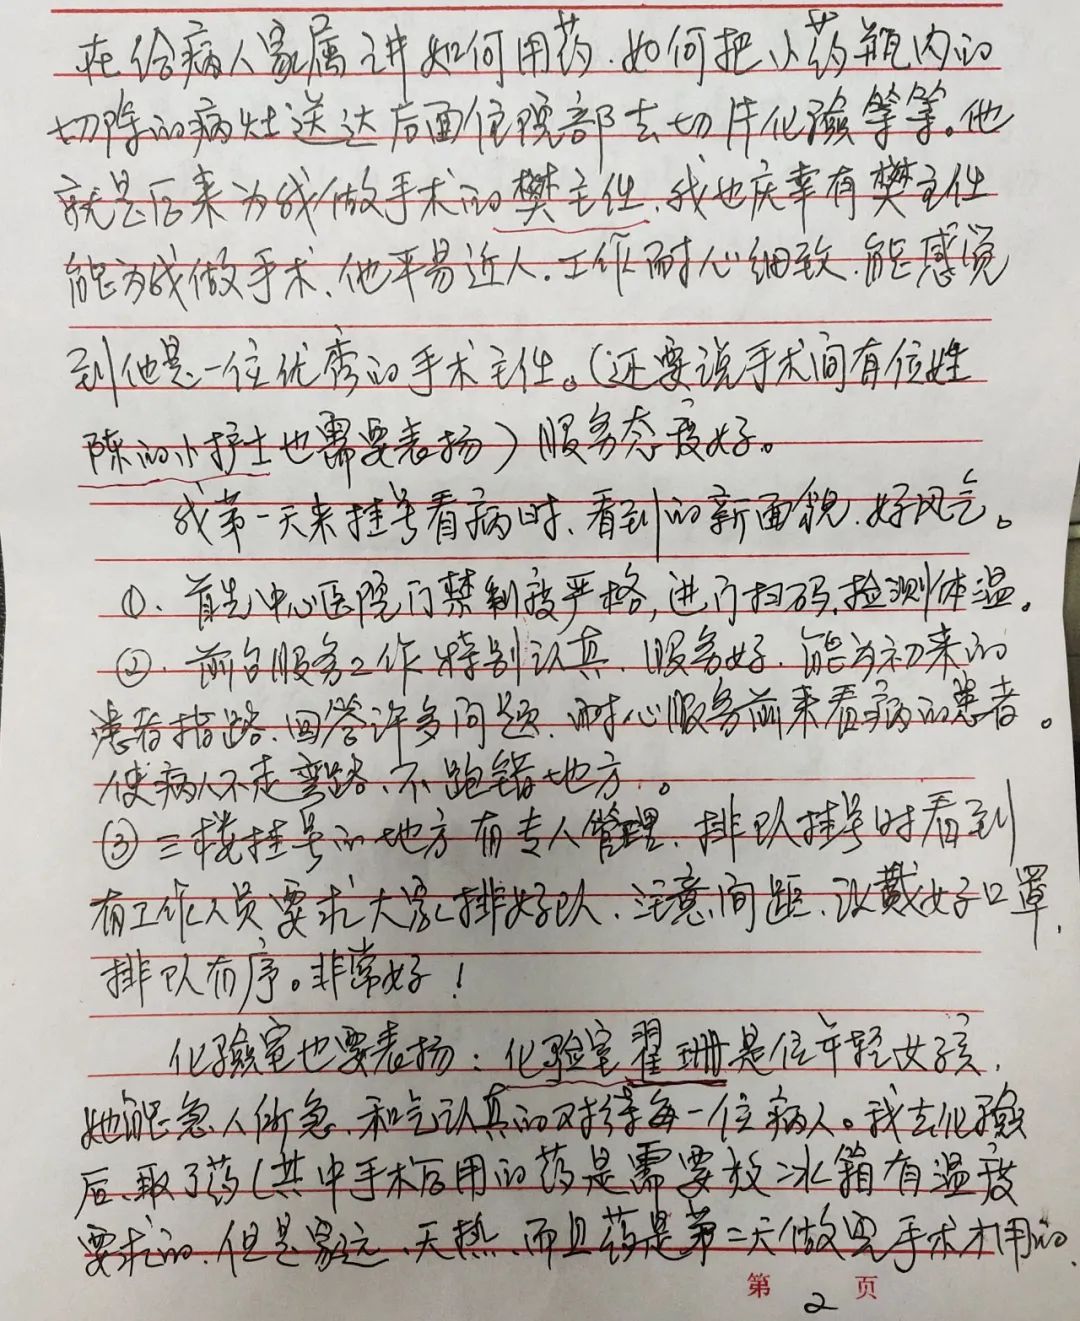 在给病人家属讲如何用药.如何把小药瓶内的
切除的病灶送达后面住院部去切片化验等等。他
就是后来为我做手术的樊主任.我也庆幸有樊主任
能为我做手术.他平易近人.工作耐心细致.能感觉
到他是一位优秀的手术主任。(还要说手术间有位姓
陈的小护士也需要表扬)服务态度好。
我第一天来挂号看病时、看到的新面貌.好风气。
①.首先中心医院门禁制度严格,进门扫码,检测体温。
②.前台服务工作特别认真.服务好.能为初来的
患者指路.回答许多问题.耐心服务前来看病的患者。
使病人不走弯路、不跑错地方。
③三楼挂号的地方有专人管理.排队挂号时看到
有工作人员要求大家排好队.注意间距.议戴好口罩.
排队有序。非常好!
化验室也要表扬:化验室翟珊是位年轻女孩.
她能急人所急.和气认真的对待每一位病人。我去化验
后、取了药(其中手术后用的药是需要放冰箱有温度
要求的.但是家远、天热、而且药是第二天做完手术才用的.
第2页